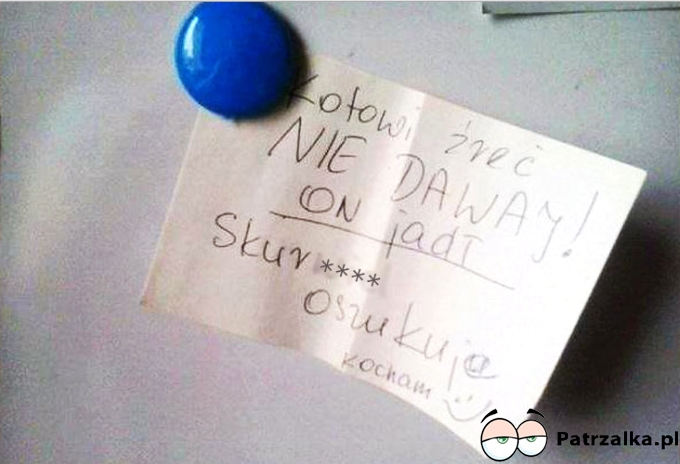 Kotowi żreć
NIE DAWAJ!
ON jadł
Skur****
oszukuje
kocham :)
Patrzalka.pl